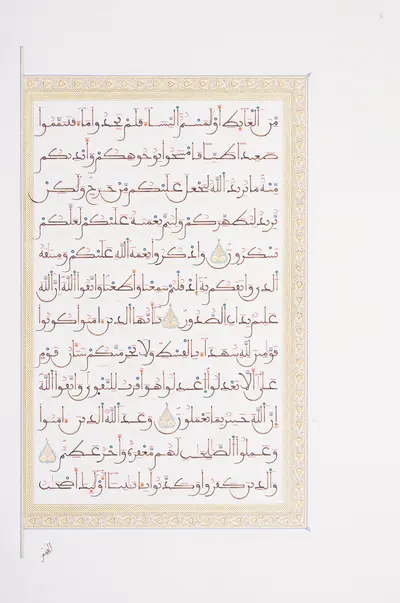 من الغائط أو لمستم النساء فلم تجدوا ماء فتيمموا
صعيدا طيبا فامسحوا بوجوهكم وأيديكم
منه ما يريد الله ليجعل عليكم من حرج ولكن
يريد ليطهركم وليتم نعمته عليكم لعلكم
تشكرون واذكروا نعمة الله عليكم وميثقه
الذي واثقكم به إذ قلتم سمعنا وأطعنا واتقوا الله إن الله
عليم بذات الصدور يأيها الذين ءامنوا كونوا
قومين لله شهداء بالقسط ولا يجرمنكم شنئان قوم
على ألا تعدلوا اعدلوا هو أقرب للتقوى واتقوا الله
إن الله خبير بما تعملون وعد الله الذين ءامنوا
وعملوا الصلحت لهم مغفرة وأجر عظيم
والذين كفروا وكذبوا بءايتنا أولئك أصحب
الجحيم